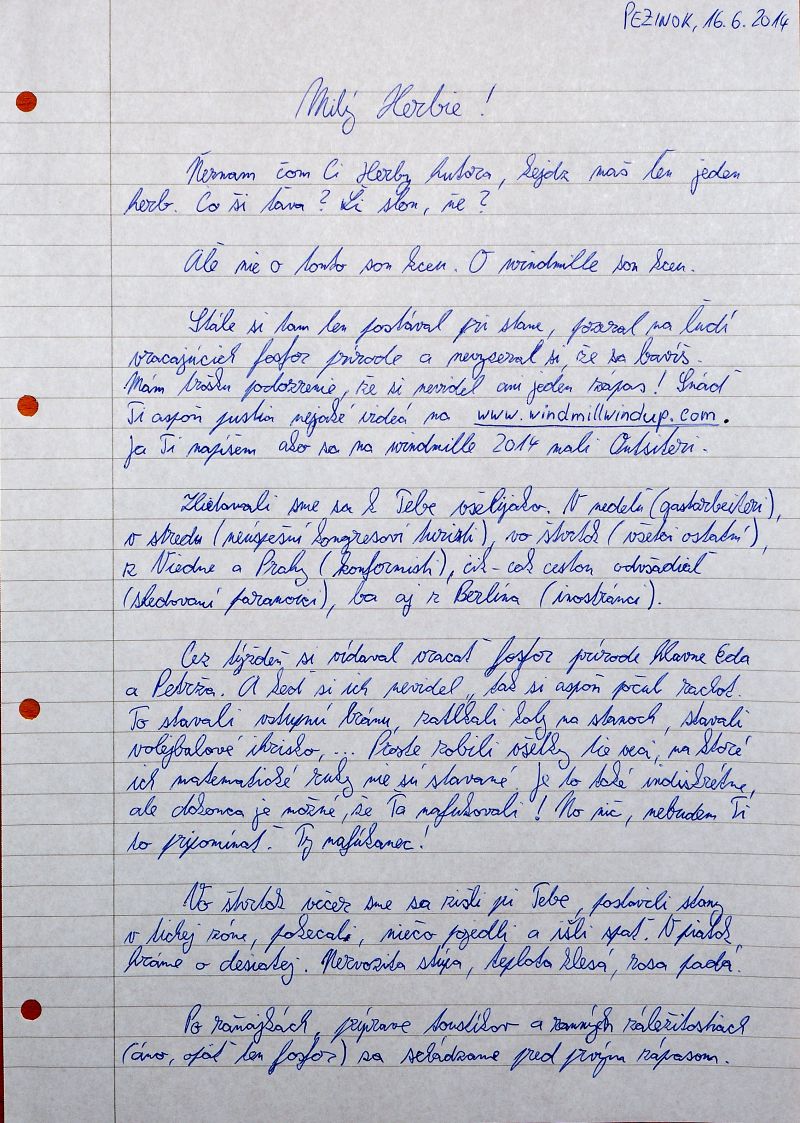 PEZINOK, 16.6.2014
Milý Herbie!
Neznam čom Ci Herby hutora, kejdz maš len jeden
herb. Co ši ťava? Či slon, ňe?
Ale nie o tomto son kceu. O windmille son kceu.
Stále si tam len postával pri stane, pozeral na ľudí
vracajúcich fosfor prírode a nevyzeral si, že sa bavíš.
Mám trošku podozrenie, že si nevidel ani jeden zápas! Snáď
Ti aspoň pustia nejaké videá na www.windmillwindup.com.
Ja Ti napíšem ako sa na windmille 2014 mali Outsiteri.
Zlietavali sme sa k Tebe všelijako. V nedeľu (gastarbeiteri),
v stredu (neúspešní kongresoví turisti), vo štvrtok (všetci ostatní),
z Viedne a Prahy (konformisti), cik-cak cestou odvšadiaľ
(sledovaní paranoici), ba aj z Berlína (inostránci).
Cez týždeň si vídaval vracať fosfor prírode hlavne Eda
a Petrža. A keď si ich nevidel, tak si aspoň počul rachot.
To stavali vstupnú bránu, zatĺkali koly na stanoch, stavali
volejbalové ihrisko, ... Proste robili všetky tie veci, na ktoré
ich matematické ruky nie sú stavané. Je to také indiskrétne,
ale dokonca je možné, že Ťa nafukovali! No nič, nebudem Ti
to pripomínať. Ty nafúkanec!
Vo štvrtok večer sme sa zišli pri Tebe, postavili stany
v tichej zóne, pokecali, niečo pojedli a išli spať. V piatok
hráme o desiatej. Nervozita stúpa, teplota klesá, rosa padá.
Po raňajkách, príprave toustíkov a ranných záležitostiach
(áno, opäť ten fosfor) sa schádzame pred prvým zápasom.